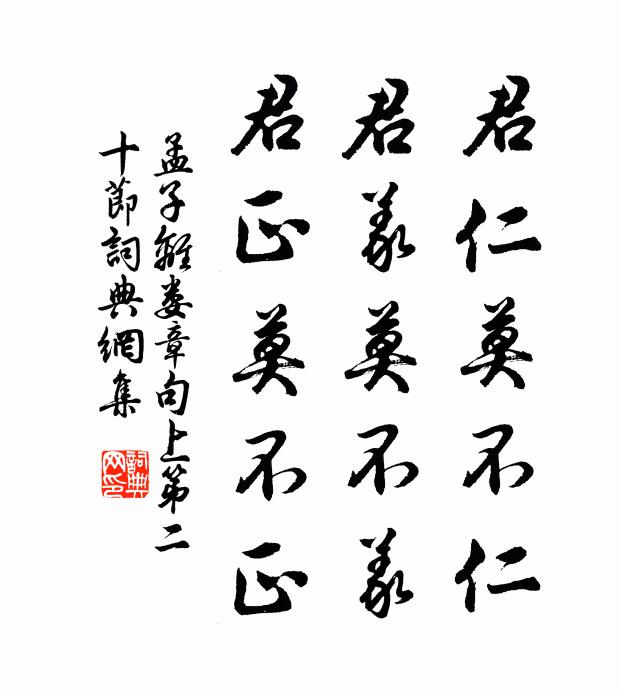 君仁莫不仁
君義莫不義
君正莫不正
孟子離婁章句上第二
十節詞典網集
詞典
网印